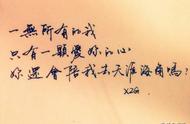 一無所有的我
只有一顆愛妳的心
妳還會陪我去天涯海角嗎?
XZG